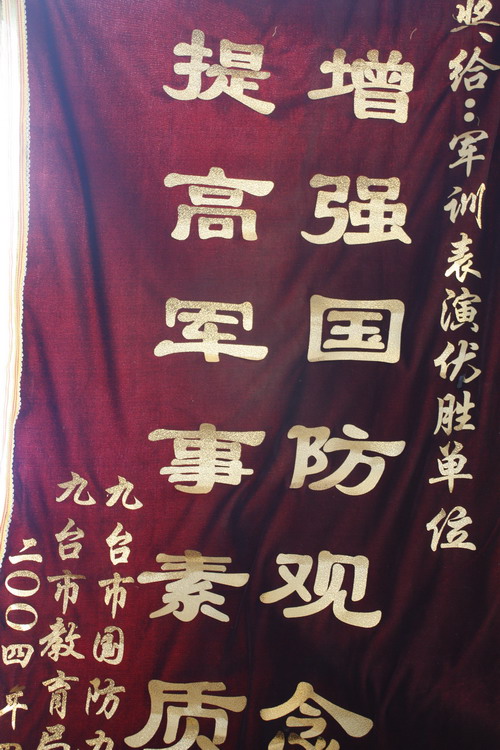 奖给：军训表演优胜单位
增强国防观念
提高军事素质
九台市国防
九台市教育局
二〇〇四年